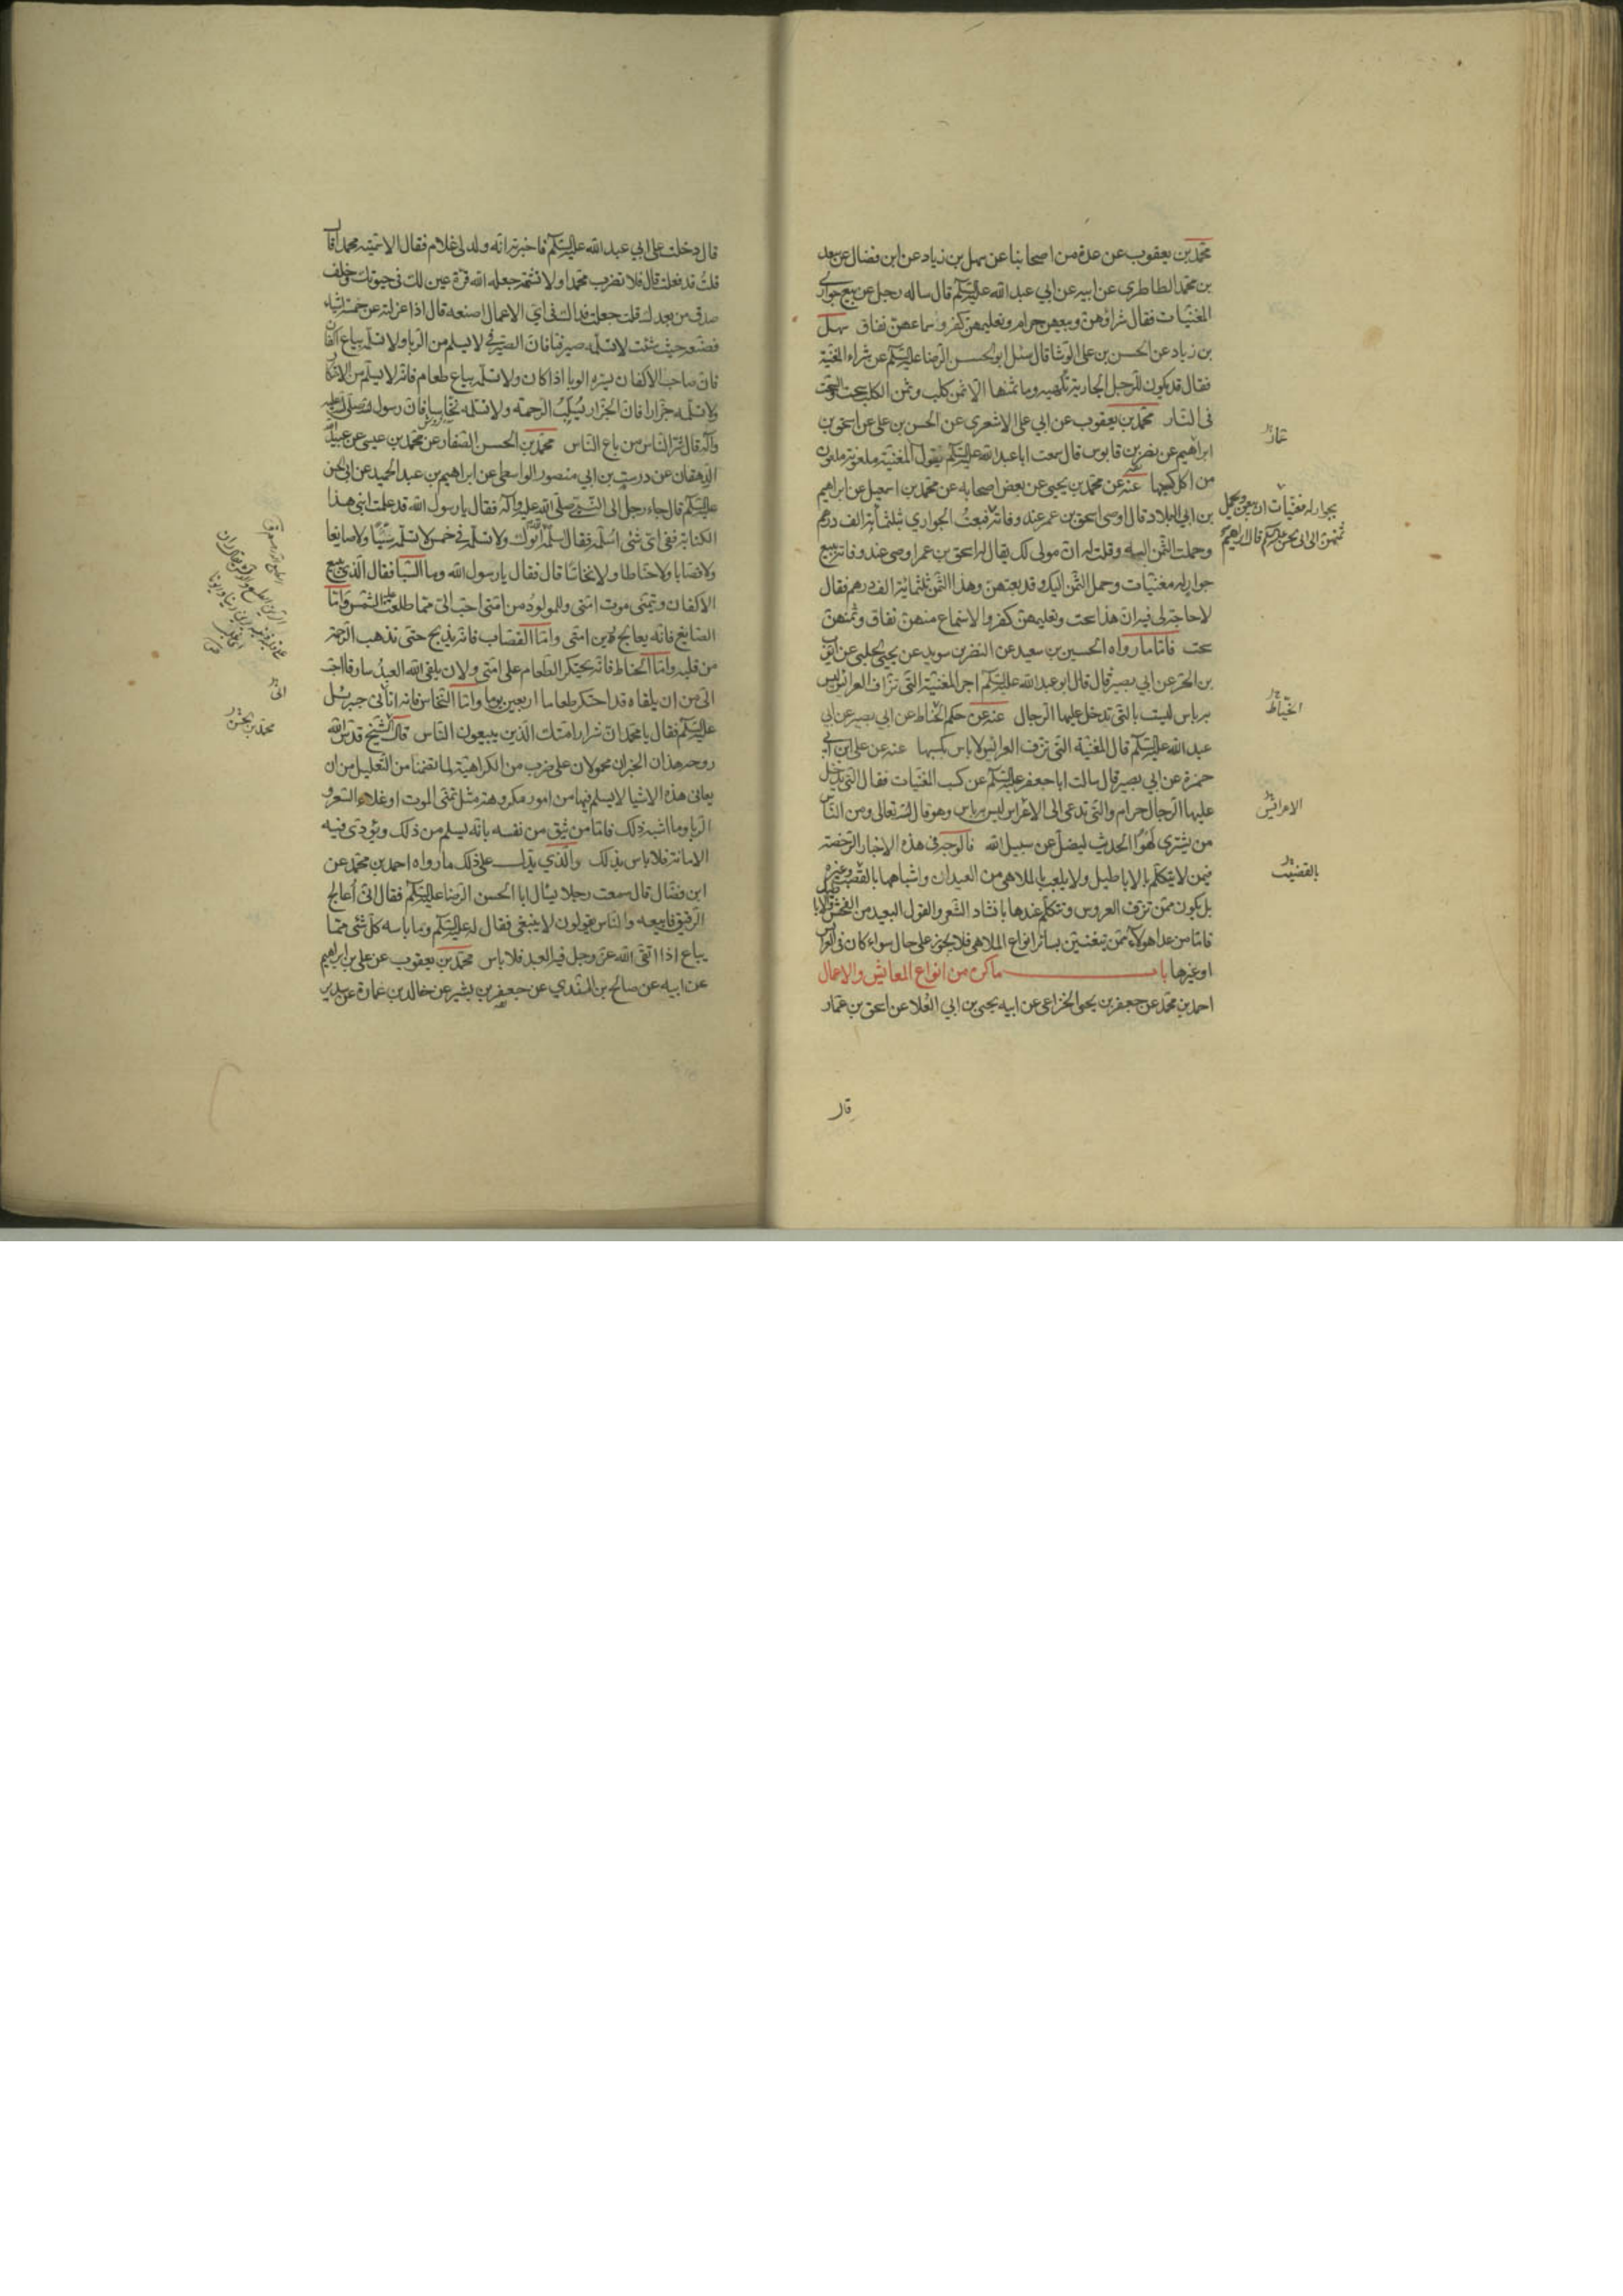 محمد بن يعقوب عن عدة من اصحابنا عن سهل بن زياد عن ابن فضال عن سعيد
بن محمد الطاطري عن ابيه عن ابي عبد الله عليه السلم قال ساله رجل عن بيع جواري
المغنيات فقال شراؤهن وبيعهن حرام وتعليمهن كفر واستماعهن نفاق سهل
بن زياد عن الحسن بن علي الوشا قال سئل ابو الحسن الرضا عليه السلم عن شراء المغنية
فقال قد يكون للرجل الجارية تلهيه وما ثمنها الا ثمن كلب وثمن الكلب سحت والسحت
في النار محمد بن يعقوب عن ابي علي الاشعري عن الحسن بن علي عن اسحق بن
ابراهيم عن نضر بن قابوس قال سمعت ابا عبد الله عليه السلم يقول المغنية ملعونة ملعون
من اكل كسبها عنه عن محمد بن يحيى عن بعض اصحابه عن محمد بن اسمعيل عن ابراهيم
بن ابي البلاد قال اوصى اسحق بن عمر عند وفاته فبعت الجواري بثلثمائة الف درهم
وحملت الثمن اليه وقلت له ان مولى لك يقال له اسحق بن عمر اوصى عند وفاته ببيع
جوار له مغنيات وحمل الثمن اليك وقد بعتهن وهذا الثمن ثلثمائة الف درهم فقال
لا حاجة لي فيه ان هذا سحت وتعليمهن كفر والاستماع منهن نفاق وثمنهن
سحت فاما ما رواه الحسين بن سعيد عن النضر بن سويد عن يحيى الحلبي عن ايوب
بن الحر عن ابي بصير قال قال ابو عبد الله عليه السلم اجر المغنية التي تزف العرائس ليس
به باس ليست بالتي تدخل عليها الرجال عنه عن حكم الخياط عن ابي بصير عن ابي
عبد الله عليه السلم قال المغنية التي تزف العرائس لا باس بكسبها عنه عن علي بن ابي
حمزة عن ابي بصير قال سالت ابا جعفر عليه السلم عن كسب المغنيات فقال التي يدخل
عليها الرجال حرام والتي تدعى الى الاعراس ليس به باس وهو قال الله تعالى ومن الناس
من يشتري لهو الحديث ليضل عن سبيل الله فالوجه في هذه الاخبار الرخصة
فيمن لا يتكلم بالاباطيل ولا يلعب بالملاهي من العيدان واشباهها بالقصب وغيره
بل يكون ممن تزف العروس وتتكلم عندها بانشاد الشعر والقول البعيد من الفحش والاباطيل
فاما من عدا هولاء ممن يتغنين بسائر انواع الملاهي فلا يجوز على حال سواء كان في العرائس
او غيرها باب ما كره من انواع المعايش والاعمال
احمد بن محمد عن جعفر بن يحيى الخزاعي عن ابيه يحيى بن ابي العلا عن اسحق بن عمار
قال
بجوار له مغنيات ان يبعن ويحمل
ثمنهن الى ابي الحسن عليه السلم قال ابراهيم
الخياط
الاعرائس
بالقضيب
قال دخلت على ابي عبد الله عليه السلم فاخبرته انه ولد لي غلام فقال الا سميته محمدا قال
قلت قد فعلت قال فلا تضرب محمدا ولا تشتمه جعله الله قرة عين لك في حيوتك وخلف
صدق من بعدك قلت جعلت فداك في اي الاعمال اصنعه قال اذا عزلته عن خمسة اشياء
فضعه حيث شئت لا تسلمه صيرفيا فان الصيرفي لا يسلم من الربا ولا تسلمه بياع اكفان
فان صاحب الاكفان يسره الوبا اذا كان ولا تسلمه بياع طعام فانه لا يسلم من الاحتكار
ولا تسلمه جزارا فان الجزار يسلب الرحمة ولا تسلمه نخاسا فان رسول الله صلى الله عليه
وآله قال شر الناس من باع الناس محمد بن الحسن الصفار عن محمد بن عيسى عن عبيد الله
الدهقان عن درست بن ابي منصور الواسطي عن ابراهيم بن عبد الحميد عن ابي الحسن
عليه السلم قال جاء رجل الى النبي صلى الله عليه وآله فقال يا رسول الله قد علمت ابني هذا
الكتابة ففي اي شئ اسلمه فقال سلمه لله ابوك ولا تسلمه في خمس لا تسلمه سيئا ولا صايغا
ولا قصابا ولا حناطا ولا نخاسا قال فقال يا رسول الله وما السيا فقال الذي يبيع
الاكفان ويتمنى موت امتي وللمولود من امتي احب الي مما طلعت عليه الشمس واما
الصايغ فانه يعالج غبن امتي واما القصاب فانه يذبح حتى تذهب الرحمة
من قلبه واما الحناط فانه يحتكر الطعام على امتي ولان يلقى الله العبد سارقا احب
الي من ان يلقاه قد احتكر طعاما اربعين يوما واما النخاس فانه اتاني جبرئيل
عليه السلم فقال يا محمد ان شرار امتك الذين يبيعون الناس قال الشيخ قدس الله
روحه هذان الخبران محمولان على ضرب من الكراهية لما تضمنا من التعليل من ان
يعانى هذه الاشيا لا يسلم فيها من امور مكروهة مثل تمنى الموت او غلاء السعر و
الربا وما اشبه ذلك فاما من يثق من نفسه بانه يسلم من ذلك ويؤدي فيه
الامانة فلا باس بذلك والذي يدل على ذلك ما رواه احمد بن محمد عن
ابن فضال قال سمعت رجلا يسال ابا الحسن الرضا عليه السلم فقال اني اعالج
الرقيق فابيعه والناس يقولون لا ينبغي فقال له عليه السلم وما باسه كل شئ مما
يباع اذا اتقى الله عز وجل فيه العبد فلا باس محمد بن يعقوب عن علي بن ابراهيم
عن ابيه عن صالح بن السندي عن جعفر بن بشير عن خالد بن عمارة عن سدير